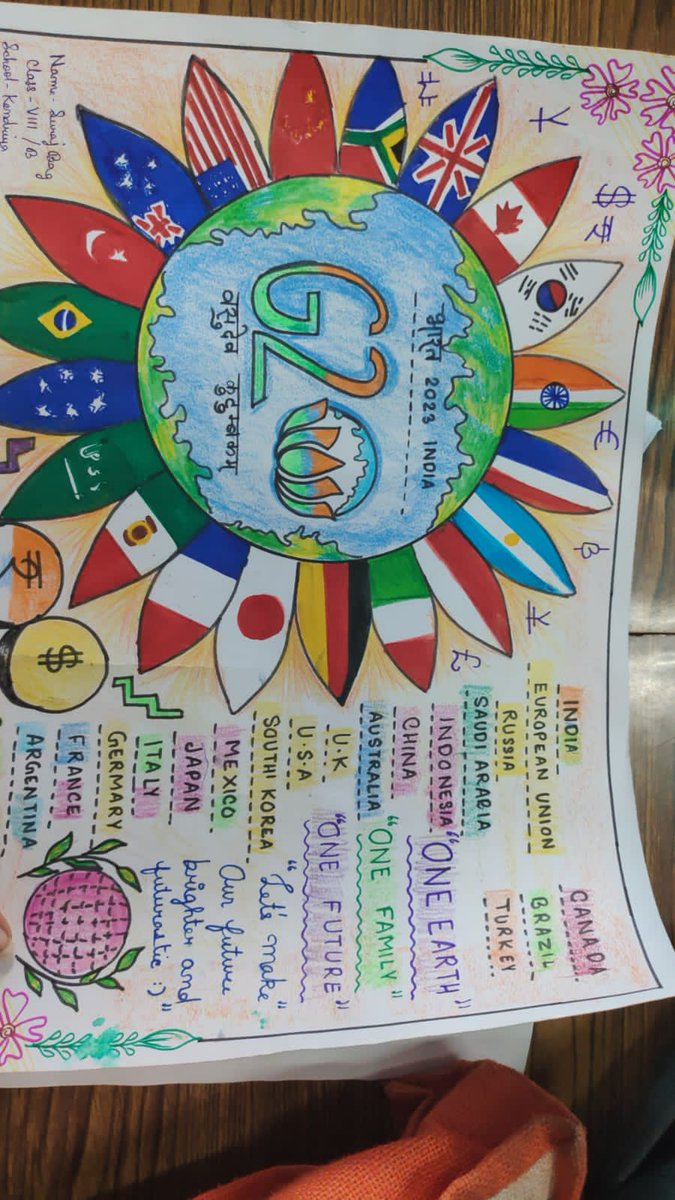 Name-
Class - VIII / B
School- Kendriya
भारत 2023 INDIA
G20
वसुदेव कुटुम्बकम
INDIA
EUROPEAN UNION
RUSSIA
SAUDI ARABIA
INDONESIA
CHINA
AUSTRALIA
U.K
U.S.A
SOUTH KOREA
MEXICO
JAPAN
ITALY
GERMANY
FRANCE
ARGENTINA
CANADA
BRAZIL
TURKEY
"ONE EARTH"
"ONE FAMILY"
"ONE FUTURE"
"Let's make"
Our future
brighter and
futurastic :)"
₹
$